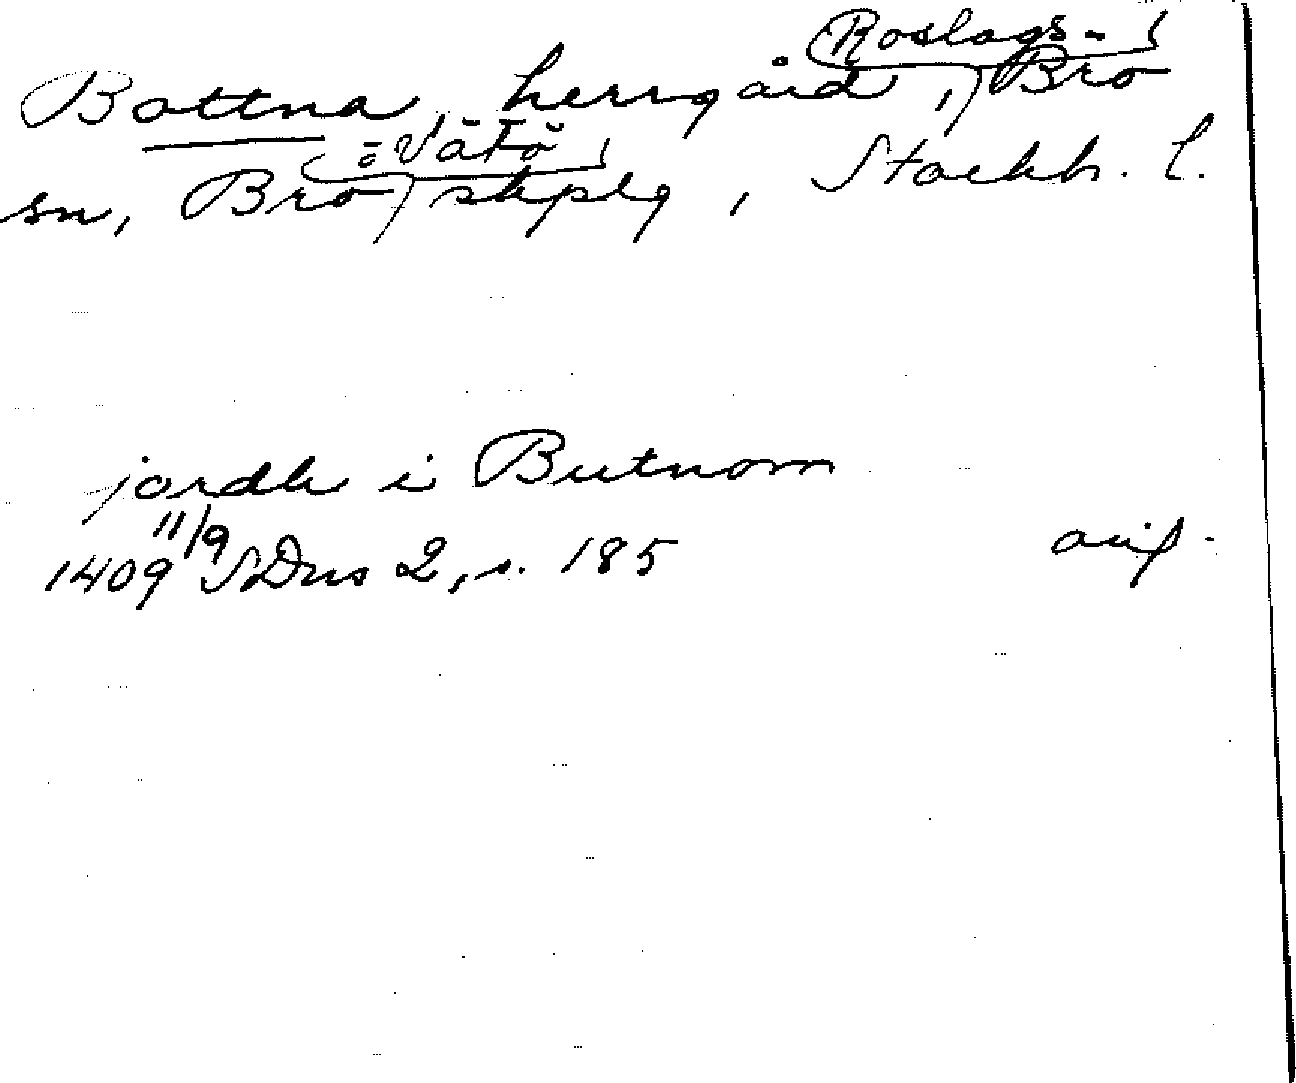 Roslags-
Bottna, herrgård, Bro
o. Vätö
sn, Bro skplg, Stockh. l.
jordh i Butnom
11/9
1409 SDns 2, s. 185